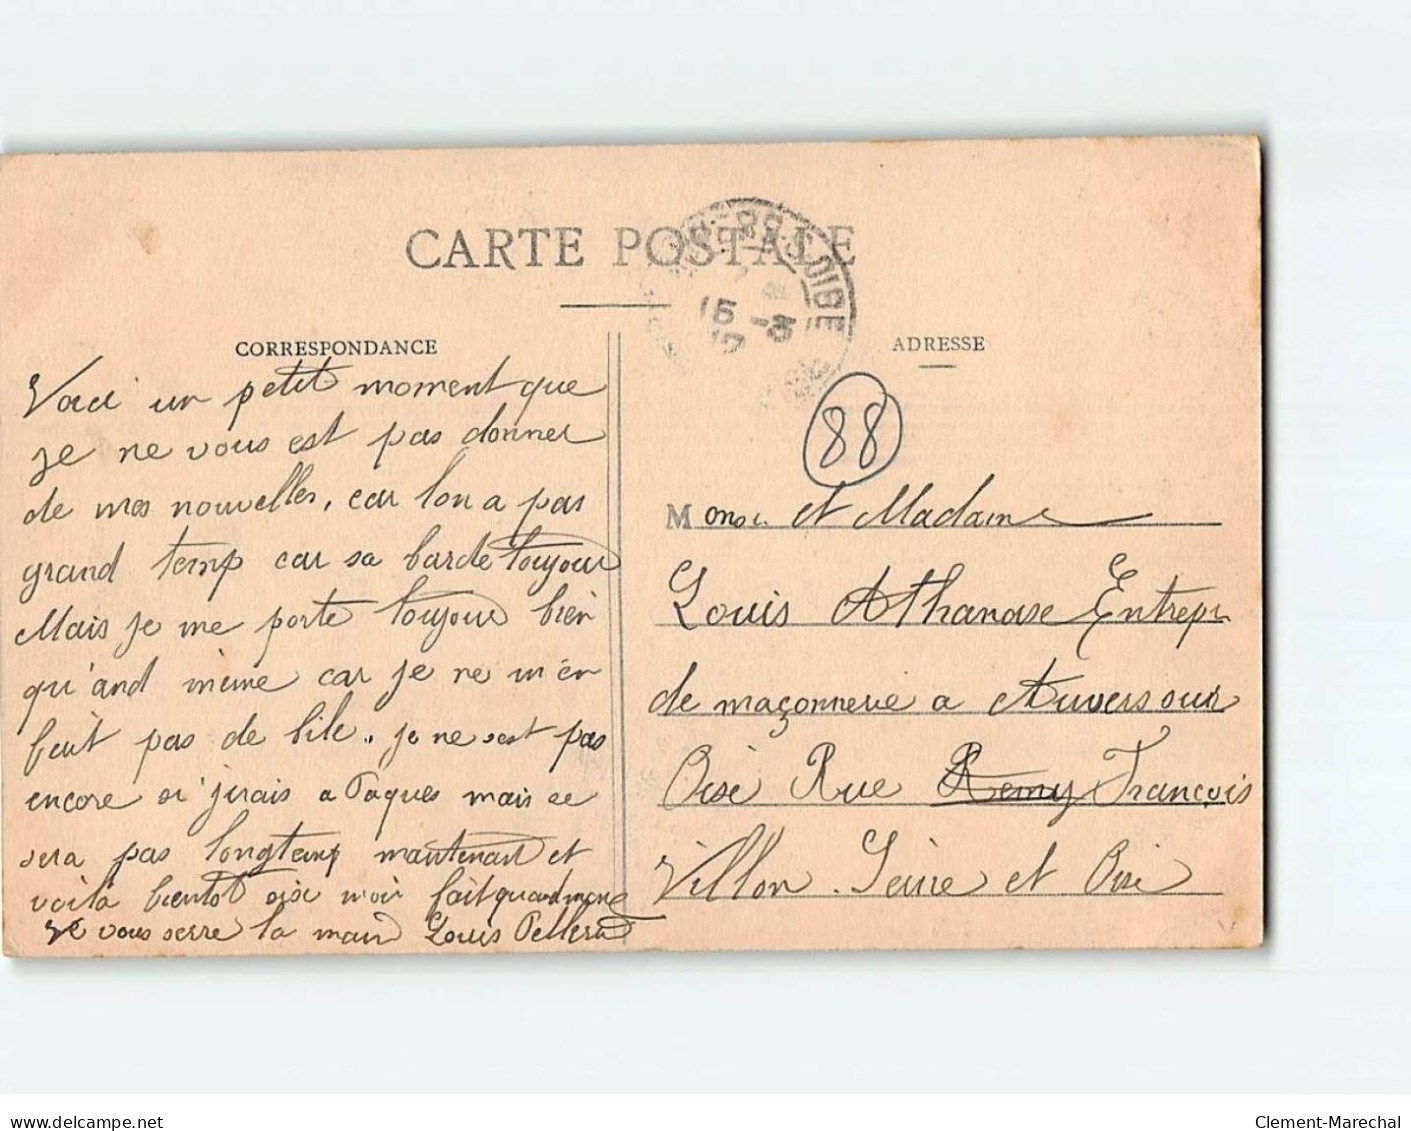 CARTE POSTALE
CORRESPONDANCE
Voici un petit moment que
je ne vous est pas donner
de mes nouvelles, car lon a pas
grand temp car sa barde toujour
Mais je me porte toujour bien
qu'and même car je ne m'en
fait pas de bile. je ne sest pas
encore si j'irais a Paques mais se
sera pas longtemp maintenant et
voila bientot six moi fait quand meme
je vous serre la main Louis
ADRESSE
88
Monsr et Madame
Louis Athanase Entrepr
de maçonnerie a Auvers sur
Oise Rue Remy François
Villon. Seine et Oise
www.delcampe.net
Clement-Marechal